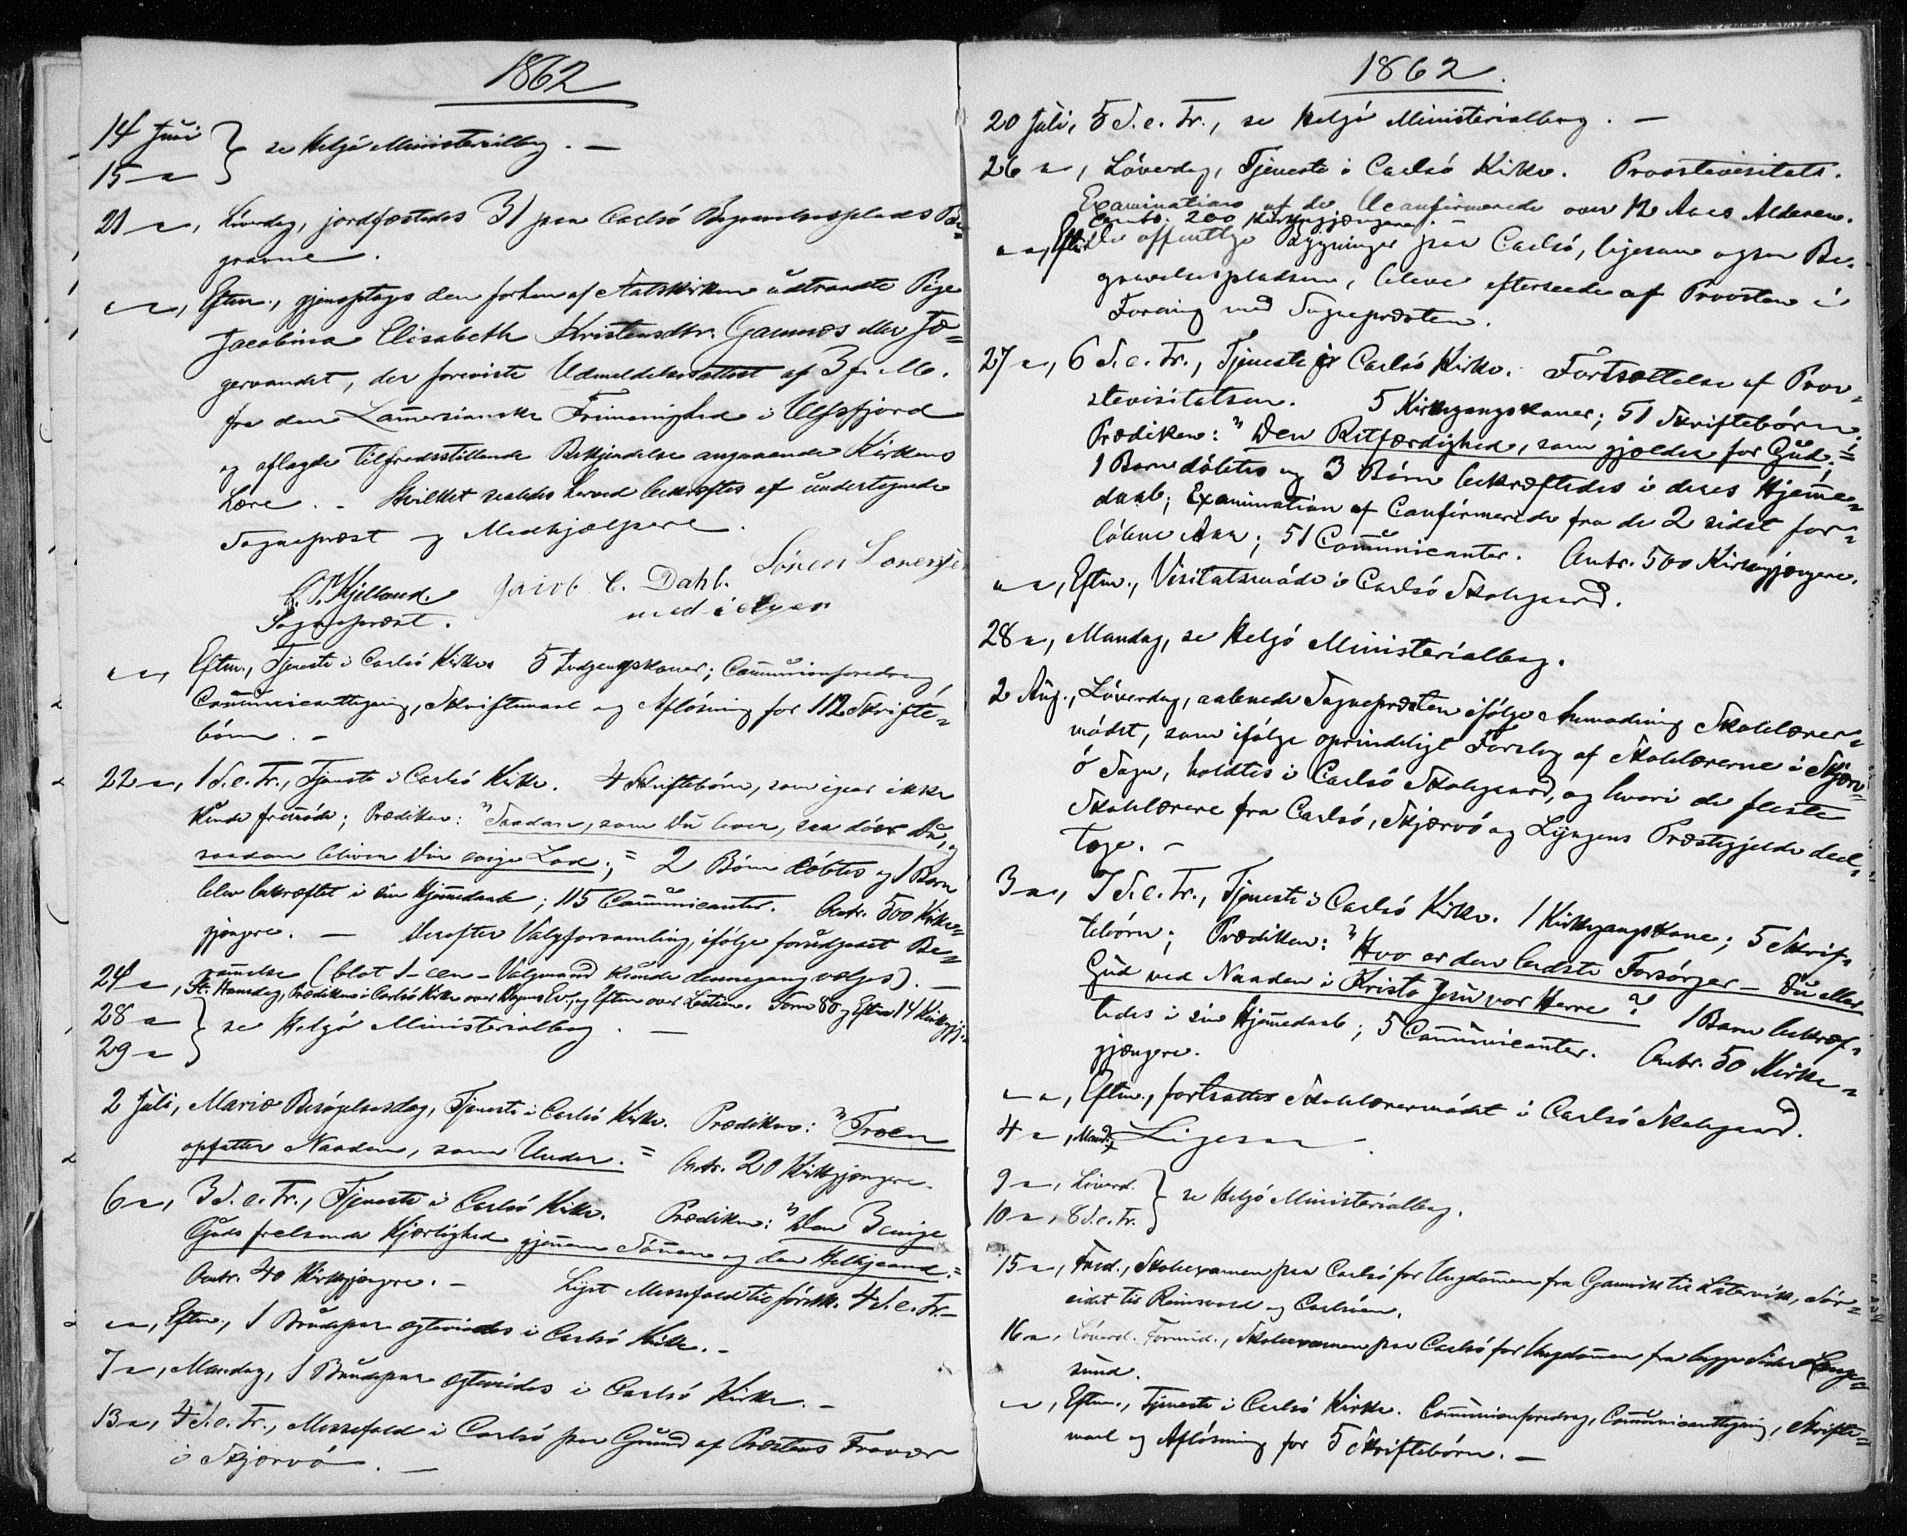 1862
14 Juni } se Helgö Ministerialbog. —
15 "
21 ", Löverdag, jordfæstedes 31 paa Carlsö Begravelsesplads
", Eftm., gjenoptoges den forhen af Statskirken udtraadte Pige
Jacobina Elisabeth Kristensdtr. Gamnæs eller Jæ-
gervandet, der foreviste Udmeldelsesattest af 3 f. M.
fra den Lammersianske Frimenighed i Ulfsfjord
og aflagde tilfredsstillende Bekjendelse angaaende Kirkens
Lære. - Hvilket saaledes herved bekræftes af undertegnede
Sognepræst og Medhjælpere.
Sören Sörensen
G. Kjelland. Jacob C. Dahl.
Sognepræst. med i
", Eftm., Tjeneste i Carlsö Kirke 5 Indgangskoner; Communionforedrag,
Communicanttegning, Skriftemaal og Aflösning for 112 Skrifte-
börn. -
22 ", 1 S. e. Tr., Tjeneste i Carlsö Kirke. 4 Skriftebörn, som igaar ikke
kunde fremmöde; Prædiken: "Saadan, som Du lever, saa döer Du, og
saadan bliver Din evige Lod;" 2 Börn döbtes og 1 Barn
blev bekræftet i sin Hjemmedaab; 115 Communicanter. Antr. 500 Kirke-
gjængere. — Derefter Valgforsamling, ifölge forudgaaet Be-
rammelse (blot 1 - een - Valgmand kunde dennegang vælges). —
24 ", St. Hansdag, Prædiken i Carlsö Kirke over Dagens Ev., og Eftm over Lectien. Form 80 og Eftm 14 Kirkegj.
28 " } se Helgö Ministerialbog. —
29 "
2 Juli, Mariæ Besøgelsesdag, Tjeneste i Carlsö Kirke. Prædiken: "Troen
opfatter Naaden, som Under." Antr. 20 Kirkegjængere.
6 ", 3 S. e. Tr., Tjeneste i Carlsö Kirke. Prædiken: "Den 3 enige
Guds frelsende Kjærlighed gjennem Sönnen og den Helligaand."
Antr. 40 Kirkegjængere. - Lyst Messefald til förstk. 4 S. e. Tr. -
", Eftm., 1 Brudepar egteviedes i Carlsö Kirke. -
7 ", Mandag, 1 Brudepar egteviedes i Carlsö Kirke. -
13 ", 4 S. e. Tr., Messefald i Carlsö paa Grund af Præstens Fravær
i Skjærvö. —
1862.
20 Juli, 5 S. e. Tr., se Helgö Ministerialbog. —
26 ", Löverdag, Tjeneste i Carlsö Kirke. Provstevisitats.
Examination af de Uconfirmerede over 12 Aars Alderen.
Omtr. 200 Kirkegjængere. -
", Eftm. De offentlige Bygninger paa Carlsö, ligesom ogsaa Be-
gravelsespladsen, bleve efterseede af Provsten i
Forening med Sognepræsten.
27 ", 6 S. e. Tr., Tjeneste i Carlsö Kirke. Fortsættelse af Prov-
stevisitatsen. 5 Kirkegangskoner; 51 Skriftebörn;
Prædiken: "Den Retfærdighed, som gjælder for Gud;"
1 Barn döbtes og 3 Börn bekræftedes i deres Hjemme-
daab; Examination af Confirmerede fra de 2 sidst for-
löbne Aar; 51 Communicanter. Antr. 500 Kirkegjængere.
", Eftm., Visitatsmöde i Carlsö Skolegaard.
28 ", Mandag, se Helgö Ministerialbog.
2 Aug., Löverdag, aabnede Sognepræsten ifölge Anmodning Skolelærer-
mödet, som ifölge oprindeligt Forslag af Skolelærerne i Skjærv-
ö Sogn, holdtes i Carlsö Skolegaard, og hvori de fleste
Skolelærere fra Carlsö, Skjærvö og Lyngens Præstegjelde deel-
toge. -
3 ", 7 S. e. Tr., Tjeneste i Carlsö Kirke. 1 Kirkegangskone; 5 Skrif-
tebörn; Prædiken: "Hvo er den bedste Forsörger - Du eller
Gud ved Naaden i Kristo Jesu vor Herre?" 1 Barn bekræf-
tedes i sin Hjemmedaab; 5 Communicanter. Antr. 50 Kirke-
gjængere.
", Eftm., fortsattes Skolelærermödet i Carlsö Skolegaard.
4 ", Mand., Ligesaa.
9 ", Löverd. } se Helgö Ministerialbog.
10 ", 8 S. e. Tr.
15 ", Fred., Skoleexamen paa Carlsö for Ungdommen fra Gamvik til Latervik, Sör-
eidet til Reinsvold og Carlsöen.
16 ", Löverd. Formid., Skoleexamen paa Carlsö for Ungdommen fra begge Sider Lang-
sund.
", Eftm., Tjeneste i Carlsö Kirke. Communionforedrag, Communicanttegning, Skrifte-
maal og Aflösning for 5 Skriftebörn. —